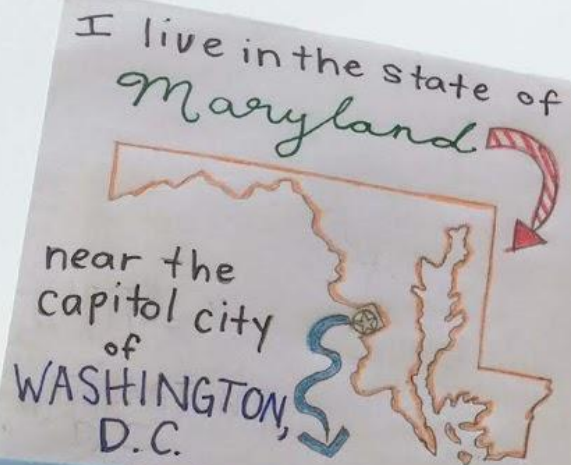 I live in the state of
Maryland
near the
capitol city
of
WASHINGTON,
D.C.